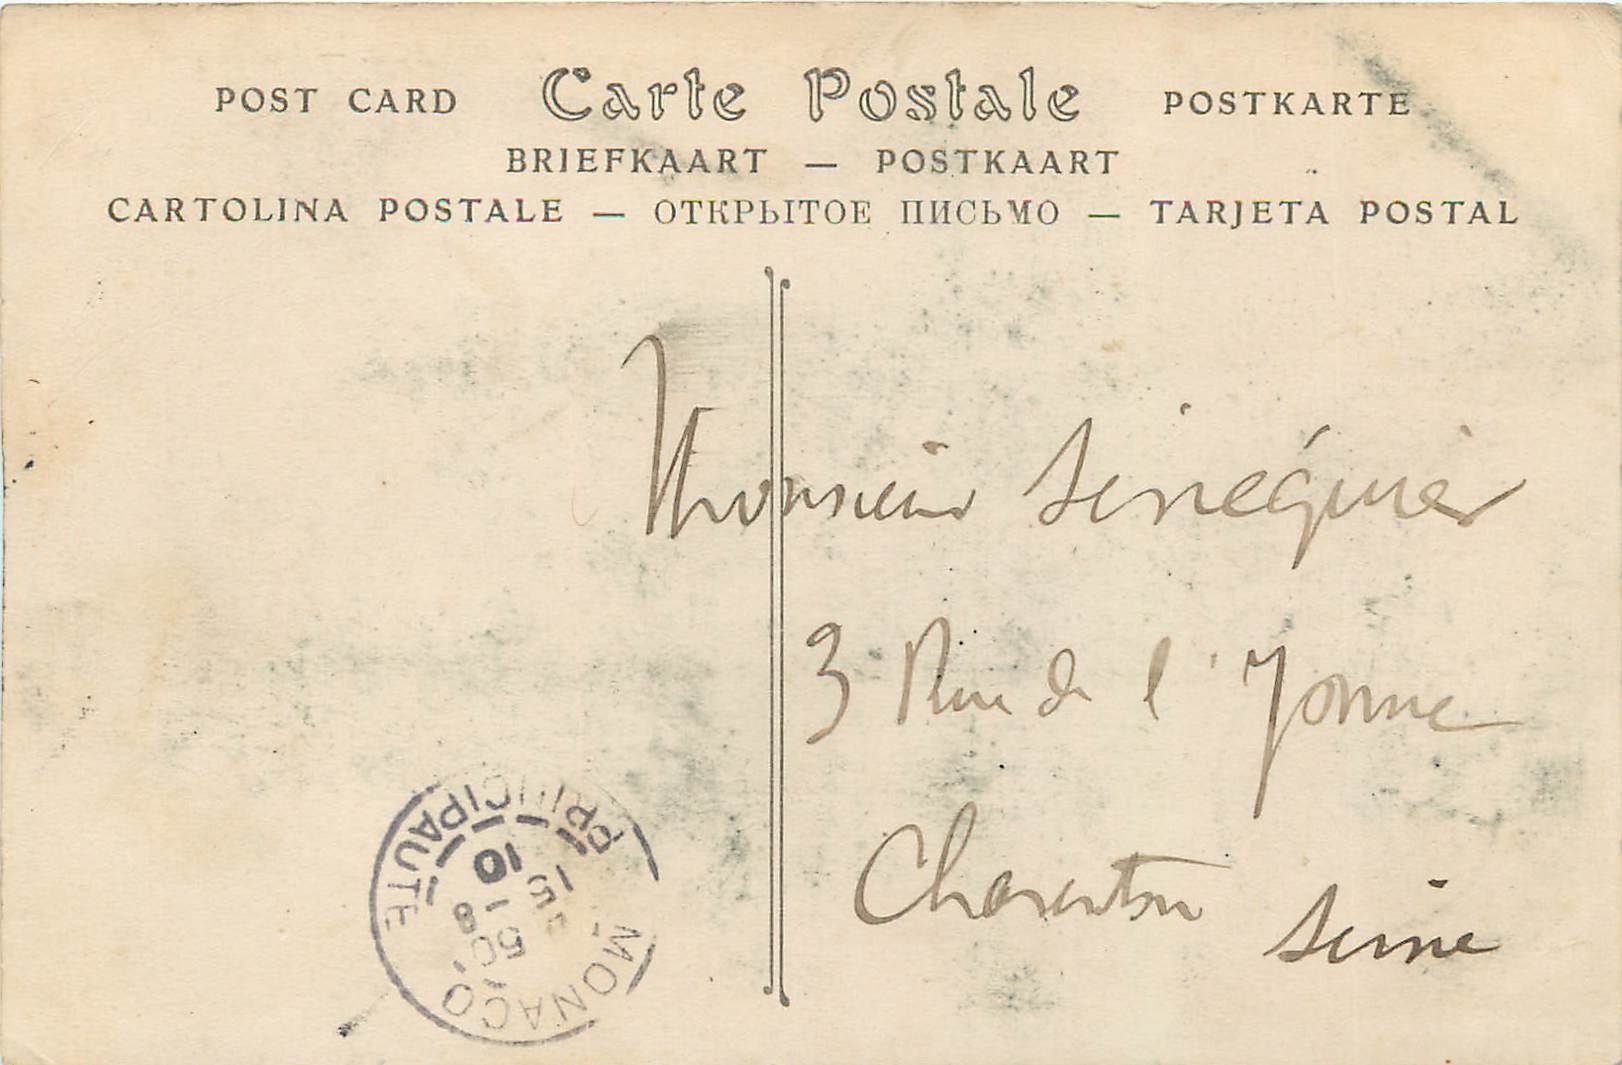 POST CARD Carte Postale POSTKARTE
BRIEFKAART — POSTKAART
CARTOLINA POSTALE — ОТКРЫТОЕ ПИСЬМО — TARJETA POSTAL
Monsieur Sénéquier
3 Rue de l'Yonne
Charenton
Seine
MONACO
PRINCIPAUTÉ